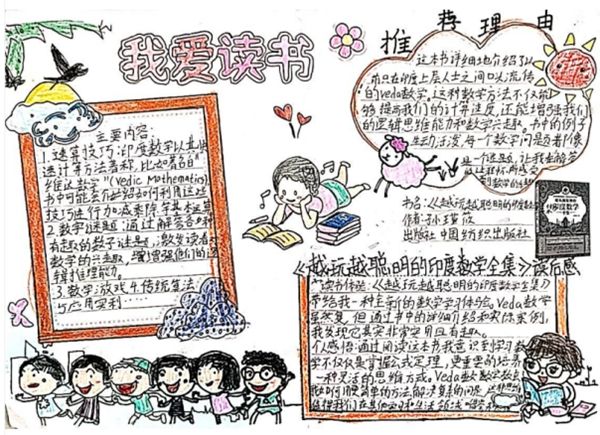 我爱读书
推荐理由
主要内容:
1.速算技巧:印度数学以其快
速计算方法著称,比如著名的"
维迪数学"(Vedic Mathematics)
书中可能会介绍如何利用这些
技巧进行加减乘除等基本运算
2.数学谜题:通过解答各种
有趣的数学谜题,激发读者对
数学的兴趣,增强他们的逻
辑推理能力。
3.数学游戏4.传统算法
5.应用实例……
这本书详细地介绍了以
前只在印度上层人士之间口头流传
的veda数学,这种数学方法不仅能
够提高我们的计算速度,还能增强我们
的逻辑思维能力和数学兴趣。书中的例子
生动、活泼,每一个数学问题员都像
是一个谜题,让我
书名:《越玩越聪明的印度数学
作者:
出版社 中国纺织出版社
《越玩越聪明的印度数学全集》读后感
读书体验:《越玩越聪明的印度数学全集》
带给我一种全新的数学学习体验。Veda数学
虽然复杂,但通过书中的详细介绍和实际案例,
我发现它其实非常实用且有趣。
感悟:通过阅读这本书我意识到学习数
学不仅仅是掌握公式定理,更重要的是培养
一种灵活的思维方式。Veda数学教
如何用简单的方法解决复杂的问题